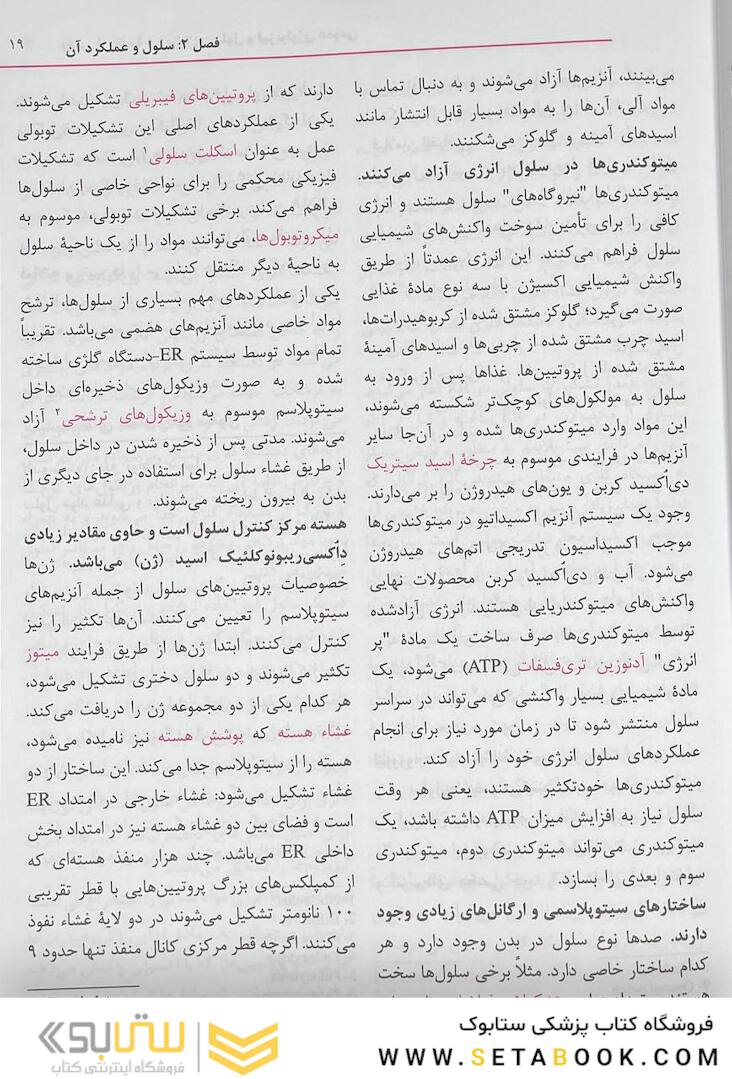 فصل ۲: سلول و عملکرد آن
۱۹
می‌بینند، آنزیم‌ها آزاد می‌شوند و به دنبال تماس با
مواد آلی، آن‌ها را به مواد بسیار قابل انتشار مانند
اسیدهای آمینه و گلوکز می‌شکنند.
میتوکندری‌ها در سلول انرژی آزاد می‌کنند.
میتوکندری‌ها "نیروگاه‌های" سلول هستند و انرژی
کافی را برای تأمین سوخت واکنش‌های شیمیایی
سلول فراهم می‌کنند. این انرژی عمدتاً از طریق
واکنش شیمیایی اکسیژن با سه نوع مادۀ غذایی
صورت می‌گیرد؛ گلوکز مشتق شده از کربوهیدرات‌ها،
اسید چرب مشتق شده از چربی‌ها و اسیدهای آمینۀ
مشتق شده از پروتیین‌ها. غذاها پس از ورود به
سلول به مولکول‌های کوچک‌تر شکسته می‌شوند،
این مواد وارد میتوکندری‌ها شده و در آن‌جا سایر
آنزیم‌ها در فرایندی موسوم به چرخۀ اسید سیتریک
دی‌اُکسید کربن و یون‌های هیدروژن را بر می‌دارند.
وجود یک سیستم آنزیم اکسیداتیو در میتوکندری‌ها
موجب اکسیداسیون تدریجی اتم‌های هیدروژن
می‌شود. آب و دی‌اُکسید کربن محصولات نهایی
واکنش‌های میتوکندریایی هستند. انرژی آزادشده
توسط میتوکندری‌ها صرف ساخت یک مادۀ "پر
انرژی" آدنوزین تری‌فسفات (ATP) می‌شود، یک
مادۀ شیمیایی بسیار واکنشی که می‌تواند در سراسر
سلول منتشر شود تا در زمان مورد نیاز برای انجام
عملکردهای سلول انرژی خود را آزاد کند.
میتوکندری‌ها خودتکثیر هستند، یعنی هر وقت
سلول نیاز به افزایش میزان ATP داشته باشد، یک
میتوکندری می‌تواند میتوکندری دوم، میتوکندری
سوم و بعدی را بسازد.
ساختارهای سیتوپلاسمی و ارگانل‌های زیادی وجود
دارند. صدها نوع سلول در بدن وجود دارد و هر
کدام ساختار خاصی دارد. مثلاً برخی سلول‌ها سخت
دارند که از پروتیین‌های فیبریلی تشکیل می‌شوند.
یکی از عملکردهای اصلی این تشکیلات توبولی
عمل به عنوان اسکلت سلولی۱ است که تشکیلات
فیزیکی محکمی را برای نواحی خاصی از سلول‌ها
فراهم می‌کند. برخی تشکیلات توبولی، موسوم به
میکروتوبول‌ها، می‌توانند مواد را از یک ناحیۀ سلول
به ناحیۀ دیگر منتقل کنند.
یکی از عملکردهای مهم بسیاری از سلول‌ها، ترشح
مواد خاصی مانند آنزیم‌های هضمی می‌باشد. تقریباً
تمام مواد توسط سیستم ER-دستگاه گلژی ساخته
شده و به صورت وزیکول‌های ذخیره‌ای داخل
سیتوپلاسم موسوم به وزیکول‌های ترشحی۲ آزاد
می‌شوند. مدتی پس از ذخیره شدن در داخل سلول،
از طریق غشاء سلول برای استفاده در جای دیگری از
بدن به بیرون ریخته می‌شوند.
هسته مرکز کنترل سلول است و حاوی مقادیر زیادی
دِاُکسی‌ریبونوکلئیک اسید (ژن) می‌باشد. ژن‌ها
خصوصیات پروتیین‌های سلول از جمله آنزیم‌های
سیتوپلاسم را تعیین می‌کنند. آن‌ها تکثیر را نیز
کنترل می‌کنند. ابتدا ژن‌ها از طریق فرایند میتوز
تکثیر می‌شوند و دو سلول دختری تشکیل می‌شود،
هر کدام یکی از دو مجموعه ژن را دریافت می‌کند.
غشاء هسته که پوشش هسته نیز نامیده می‌شود،
هسته را از سیتوپلاسم جدا می‌کند. این ساختار از دو
غشاء تشکیل می‌شود: غشاء خارجی در امتداد ER
است و فضای بین دو غشاء هسته نیز در امتداد بخش
داخلی ER می‌باشد. چند هزار منفذ هسته‌ای که
از کمپلکس‌های بزرگ پروتیین‌هایی با قطر تقریبی
۱۰۰ نانومتر تشکیل می‌شوند در دو لایۀ غشاء نفوذ
می‌کنند. اگرچه قطر مرکزی کانال منفذ تنها حدود ۹
فروشگاه کتاب پزشکی ستابوک
WWW.SETABOOK.COM
ستابوک
فروشگاه اینترنتی کتاب